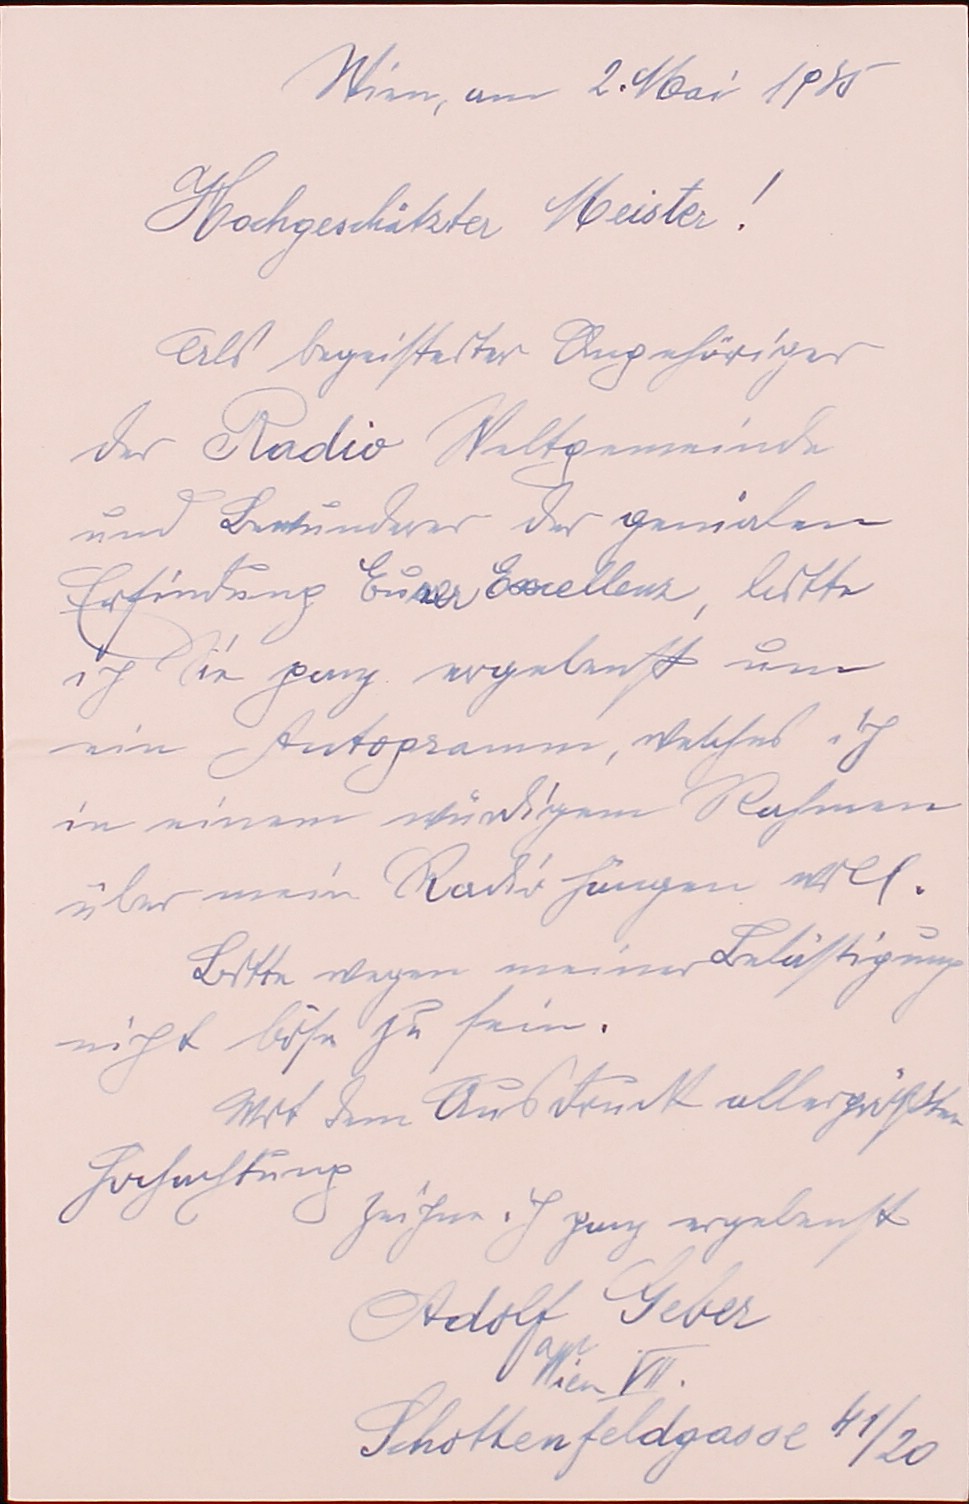 Wien, am 2. Mai 1935
Hochgeschätzter Meister!
Als begeisterter Angehöriger
der Radio Weltgemeinde
und Bewunderer der genialen
Erfindung Eurer Excellenz, bitte
ich Sie ganz ergebenst um
ein Autogramm, welches ich
in einem würdigem Rahmen
über mein Radio hängen will.
Bitte wegen meiner Belästigung
nicht böse zu sein.
Mit dem Ausdruck allergrößten
Hochachtung
zeichne ich ganz ergebenst
Adolf Geber
Wien VII.
Schottenfeldgasse 41/20